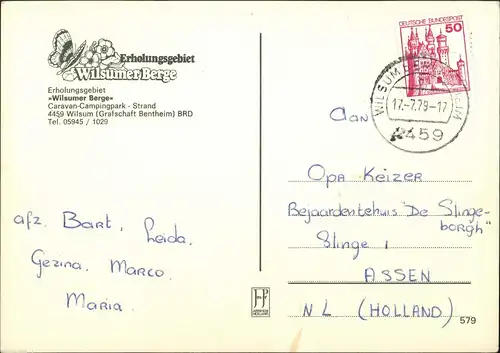 Erholungsgebiet
Wilsumer Berge
Erholungsgebiet
»Wilsumer Berge«
Caravan-Campingpark - Strand
4459 Wilsum (Grafschaft Bentheim) BRD
Tel. 05945 / 1029
DEUTSCHE BUNDESPOST
50
WILSUM
17.-7.79-17
4459
Aan
Opa Keizer
Bejaardentehuis "De Slinge-
borgh"
Slinge 1
ASSEN
NL (HOLLAND)
afz. Bart, Leida,
Gezina, Marco,
Maria.
579